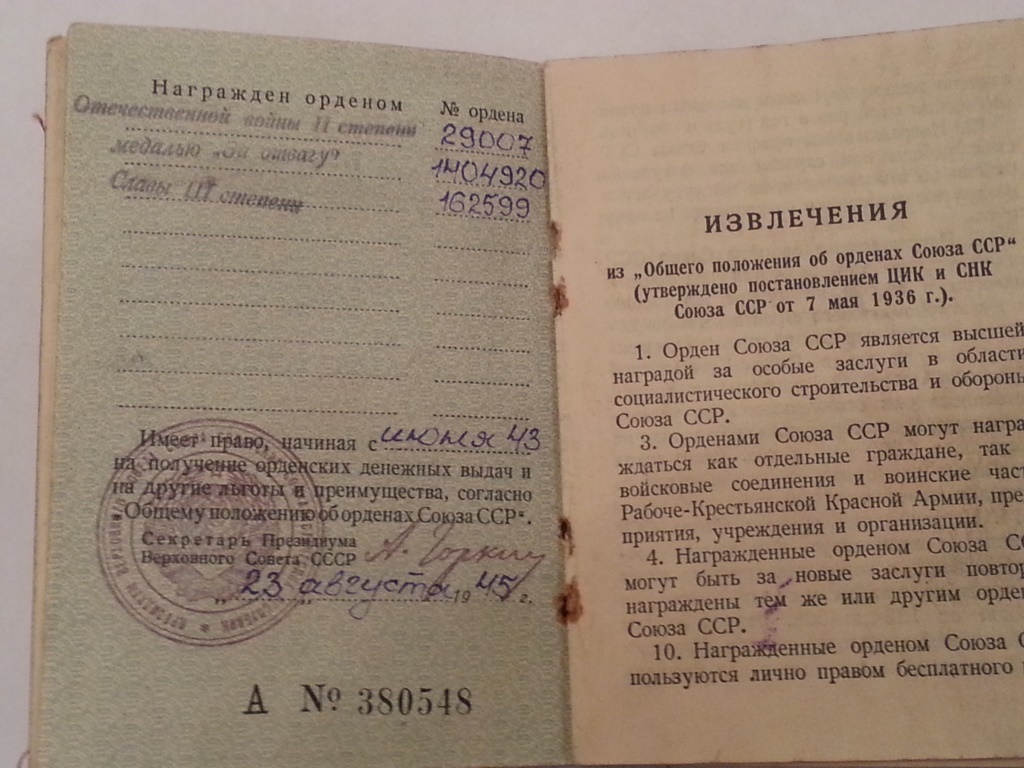 Награжден орденом № ордена
Отечественной войны II степени 29007
медалью „За отвагу" 1404920
Славы III степени 162599
Имеет право, начиная с июня 43
на получение орденских денежных выдач и
на другие льготы и преимущества, согласно
„Общему положению об орденах Союза ССР".
Секретарь Президиума
Верховного Совета СССР А. Горкин
„23" августа 1945 г.
А № 380548
ИЗВЛЕЧЕНИЯ
из „Общего положения об орденах Союза ССР"
(утверждено постановлением ЦИК и СНК
Союза ССР от 7 мая 1936 г.).
1. Орден Союза ССР является высшей
наградой за особые заслуги в области
социалистического строительства и обороны
Союза ССР.
3. Орденами Союза ССР могут награ
ждаться как отдельные граждане, так
войсковые соединения и воинские част
Рабоче-Крестьянской Красной Армии, пре
приятия, учреждения и организации.
4. Награжденные орденом Союза СС
могут быть за новые заслуги повтор
награждены тем же или другим орде
Союза ССР.
10. Награжденные орденом Союза С
пользуются лично правом бесплатного